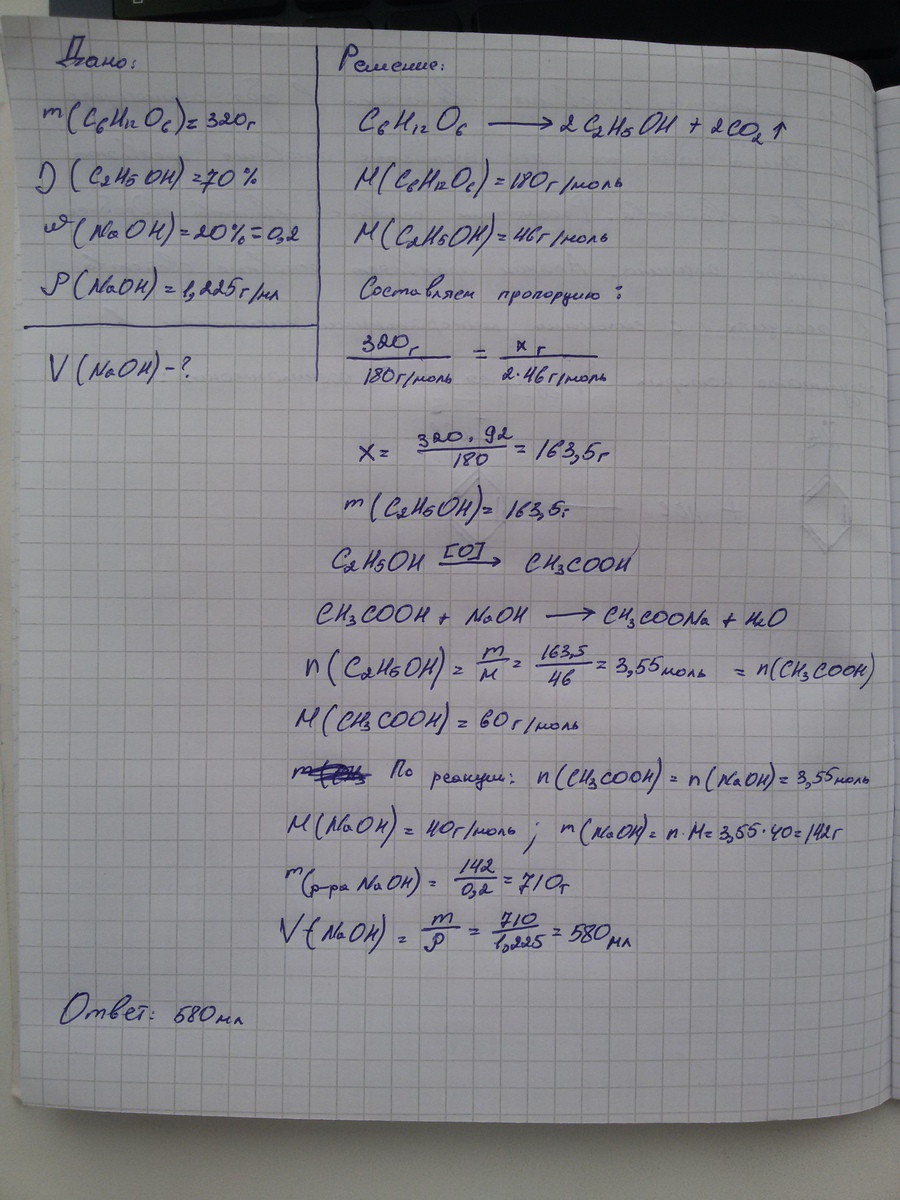 Дано:
m(C6H12O6)=320г
η(C2H5OH)=70%
ω(NaOH)=20%=0,2
ρ(NaOH)=1,225г/мл
V(NaOH)-?
Решение:
C6H12O6 → 2C2H5OH + 2CO2↑
M(C6H12O6)=180г/моль
M(C2H5OH)=46г/моль
Составляем пропорцию:
320г/180г/моль = xг/2·46г/моль
x= 320·92/180 = 163,5г
m(C2H5OH)= 163,5г
C2H5OH [O]→ CH3COOH
CH3COOH + NaOH → CH3COONa + H2O
n(C2H5OH) = m/M = 163,5/46 = 3,55моль = n(CH3COOH)
M(CH3COOH) = 60г/моль
По реакции: n(CH3COOH) = n(NaOH) = 3,55моль
M(NaOH) = 40г/моль; m(NaOH)= n·M=3,55·40=142г
m(р-ра NaOH) = 142/0,2 = 710г
V(NaOH) = m/ρ = 710/1,225 = 580мл
Ответ: 580мл